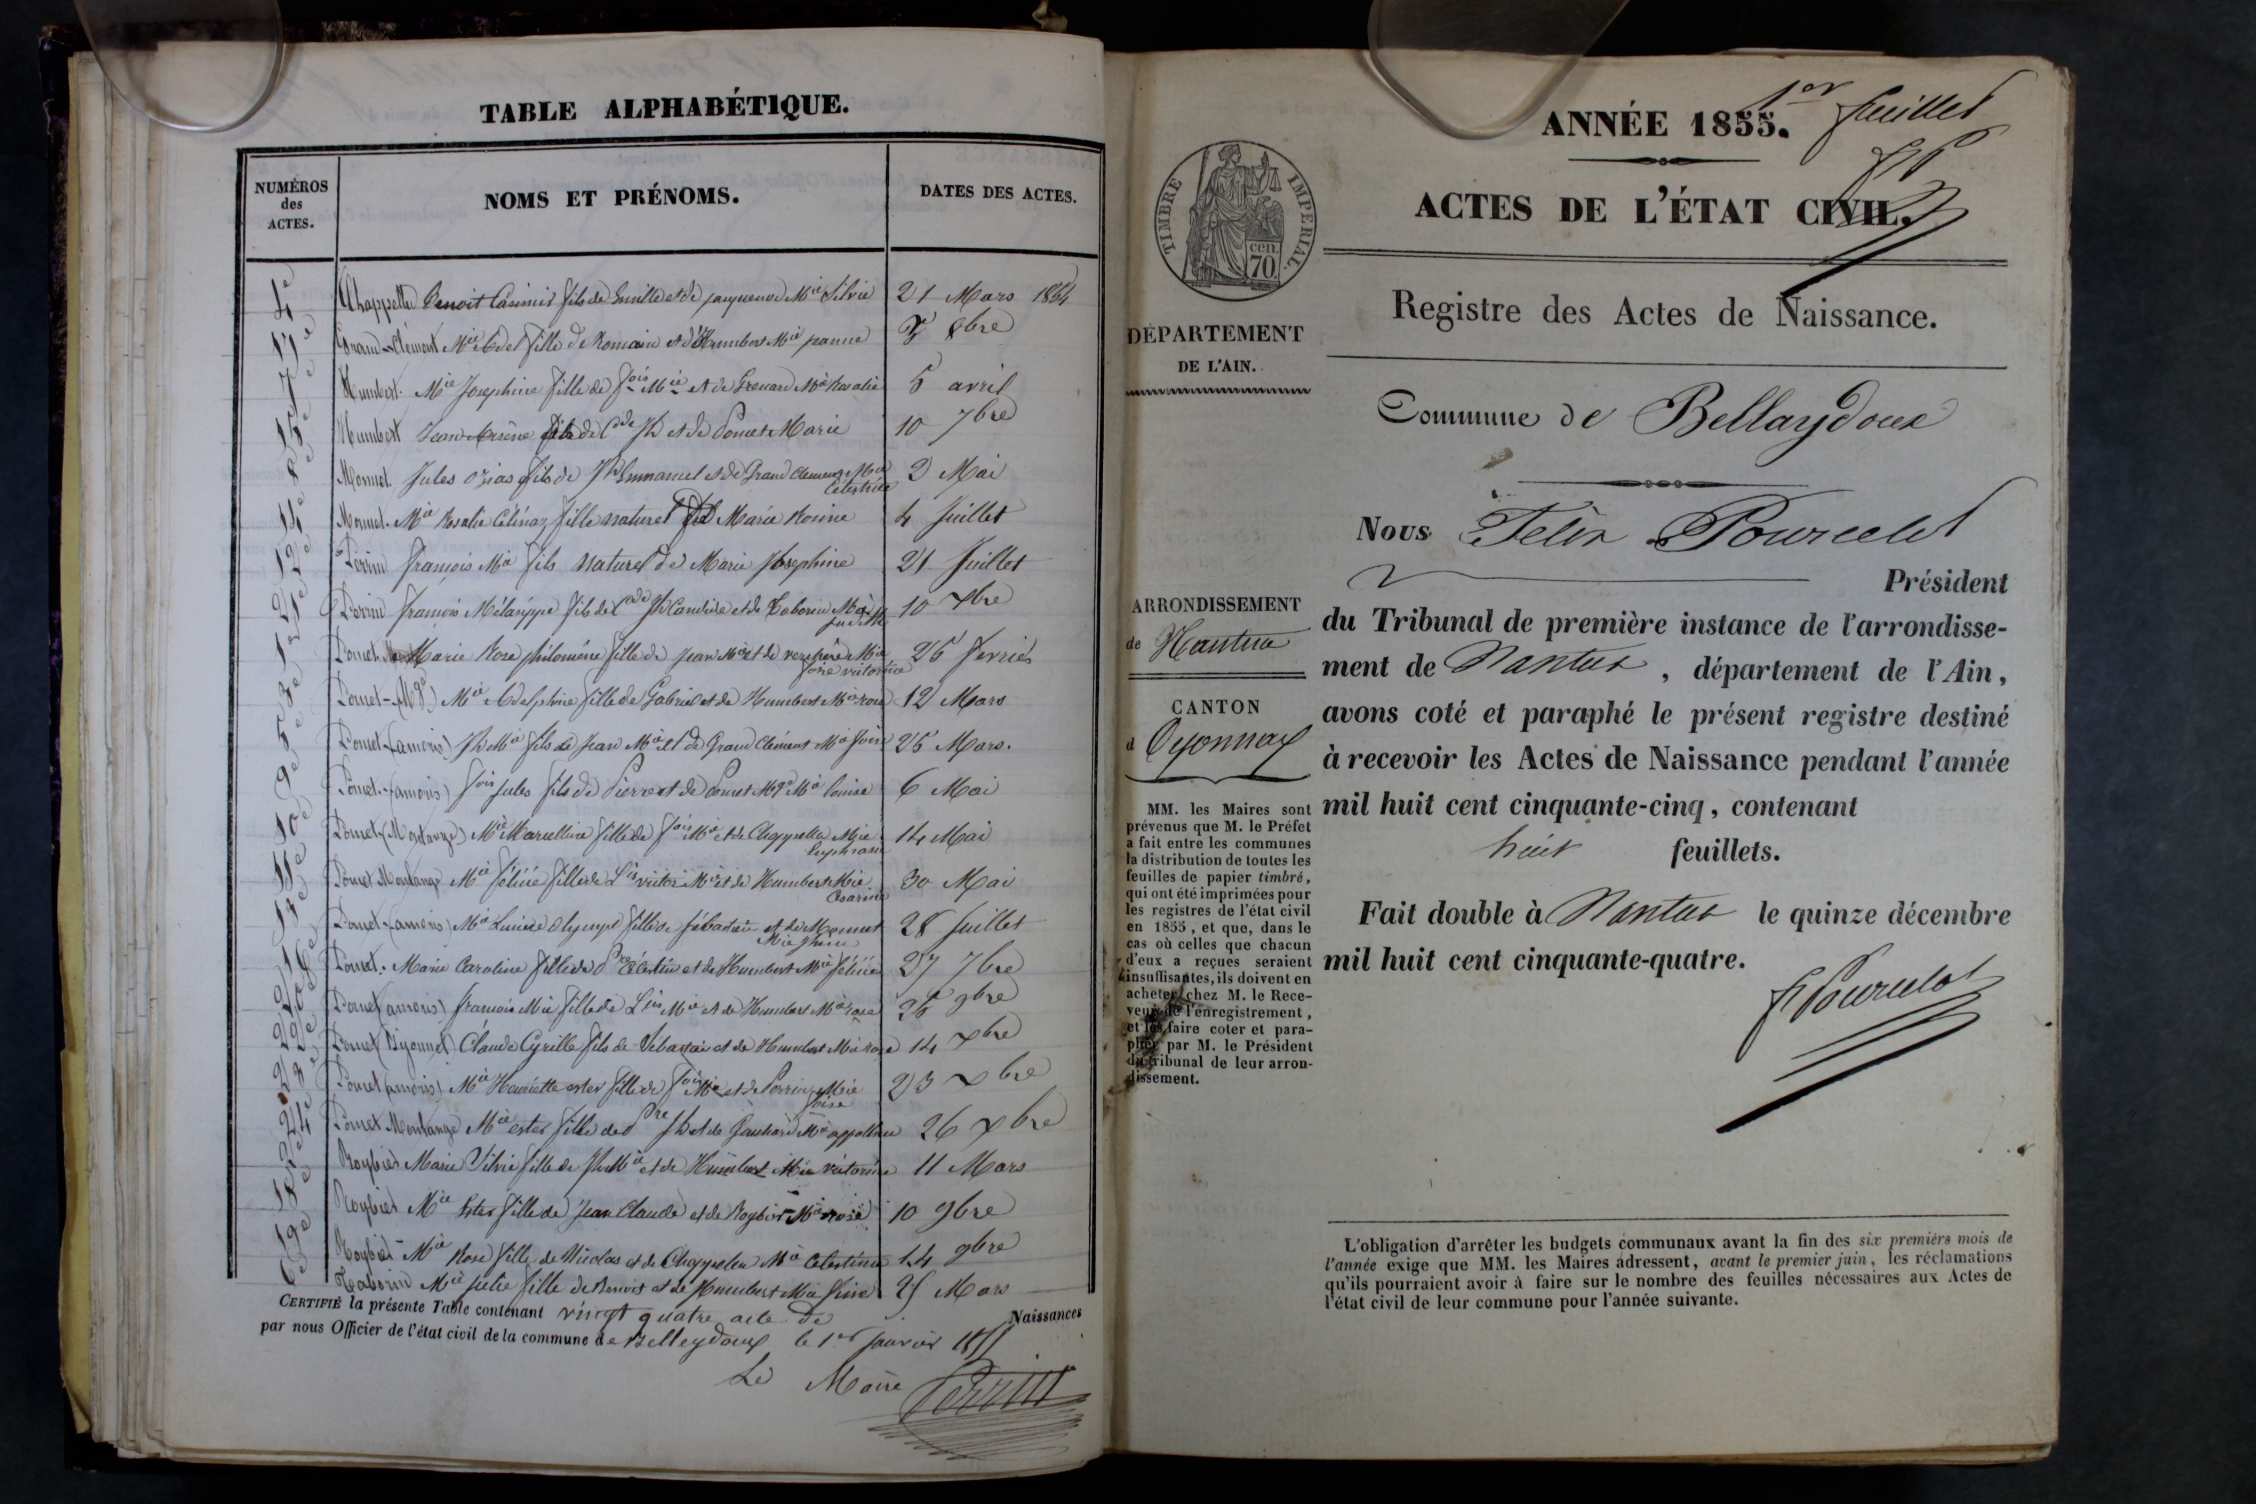 TABLE ALPHABÉTIQUE.
NUMÉROS
des
ACTES.
NOMS ET PRÉNOMS.
DATES DES ACTES.
4e Chappelle Benoit Casimir fils de Emille et de Mie Silvie 21 Mars 1854
17e Grand-Clément Mie Adel fille de Romain et d'Humbert Mie jeanne 8bre
7e Humbert Mie Josephine fille de fois Mie et de Grenard Mie Rosalie 5 avril
15e Humbert Jean Arsène fils de Cde Jh et de Poncet Marie 10 7bre
8e Monnet Jules Ozias fils de Jh Emmanuel et de Grand Clément Mie 2 Mai
Célestine
Monnet Mie Rosalie Célinaz fille naturel de Marie Rosine 4 Juillet
12e Perrin françois Mie fils naturel de Marie Josephine 21 Juillet
21e Perrin françois Mélanippe fils de Cde Jh Candide et de Taborin Mie 10 Xbre
1e Poncet Marie Rose philomène fille de jean Mie et de Mie 25 fevrier
foise victorine
3e Poncet-(Mgd) Mie Adelphine fille de Gabriel et de Humbert Mie rose 12 Mars
5e Poncet-(amoris) Jh Mie fils de Jean Mie et de Grand Clément Mie foise 25 Mars.
9e Poncet-(amoris) fois Jules fils de Pierre et de Poncet Mgd Mie louise 6 Mai
10e Poncet-(Montange) Mie Marcelline fille de fois Mie et de Chappelle Mie 14 Mai
Euphrasie
11e Poncet Montange Mie félicie fille de Lis victor Mie et de Humbert Mie 30 Mai
Césarine
13e Poncet-(amoris) Mie Lucine Olympe fille de sébastien et de Monnet 28 Juillet
Mie
16e Poncet. Marie Caroline fille de Pre Célestin et de Humbert Mie féliciée 27 7bre
20e Poncet (amoris) françoise Mie fille de Lis Mie et de Humbert Mie rose 25 9bre
22e Poncet (Dijonnet) Claude Cyrille fils de Sébastien et de Humbert Mie rose 14 Xbre
23e Poncet (amoris) Mie Henriette ester fille de fois Mie et de Perrin Mie 23 Xbre
foise
24e Poncet Montange Mie ester fille de Pre Jh et de Mie appollonie 26 Xbre
2e Roybier Marie Silvie fille de Jh Mie et de Humbert Mie victorine 11 Mars
18e Roybier Mie Ester fille de Jean Claude et de Roybier Mie rose 10 9bre
19e Roybier Mie Rose fille de Nicolas et de Chappelle Mie Célestine 14 9bre
6e Taborin Mie Julie fille de Benoit et de Humbert Mie foise 25 Mars
CERTIFIÉ la présente Table contenant vingt quatre acte de Naissances
par nous Officier de l'état civil de la commune de Belleydoux le 1er janvier 1855
Le Maire Perrin
1er feuillet
ANNÉE 1855.
FP
ACTES DE L'ÉTAT CIVIL.
TIMBRE IMPERIAL.
cen.
70
Registre des Actes de Naissance.
DÉPARTEMENT
DE L'AIN.
Commune de Bellaydoux
Nous Félix Pourcelot
Président
ARRONDISSEMENT
de Nantua
du Tribunal de première instance de l'arrondisse-
ment de Nantua, département de l'Ain,
CANTON
d Oyonnax
avons coté et paraphé le présent registre destiné
à recevoir les Actes de Naissance pendant l'année
mil huit cent cinquante-cinq, contenant
huit feuillets.
Fait double à Nantua le quinze décembre
mil huit cent cinquante-quatre.
F Pourcelot
MM. les Maires sont
prévenus que M. le Préfet
a fait entre les communes
la distribution de toutes les
feuilles de papier timbré,
qui ont été imprimées pour
les registres de l'état civil
en 1855, et que, dans le
cas où celles que chacun
d'eux a reçues seraient
insuffisantes, ils doivent en
acheter chez M. le Rece-
veur de l'enregistrement,
et les faire coter et para-
pher par M. le Président
du tribunal de leur arron-
dissement.
L'obligation d'arrêter les budgets communaux avant la fin des six premiers mois de
l'année exige que MM. les Maires adressent, avant le premier juin, les réclamations
qu'ils pourraient avoir à faire sur le nombre des feuilles nécessaires aux Actes de
l'état civil de leur commune pour l'année suivante.